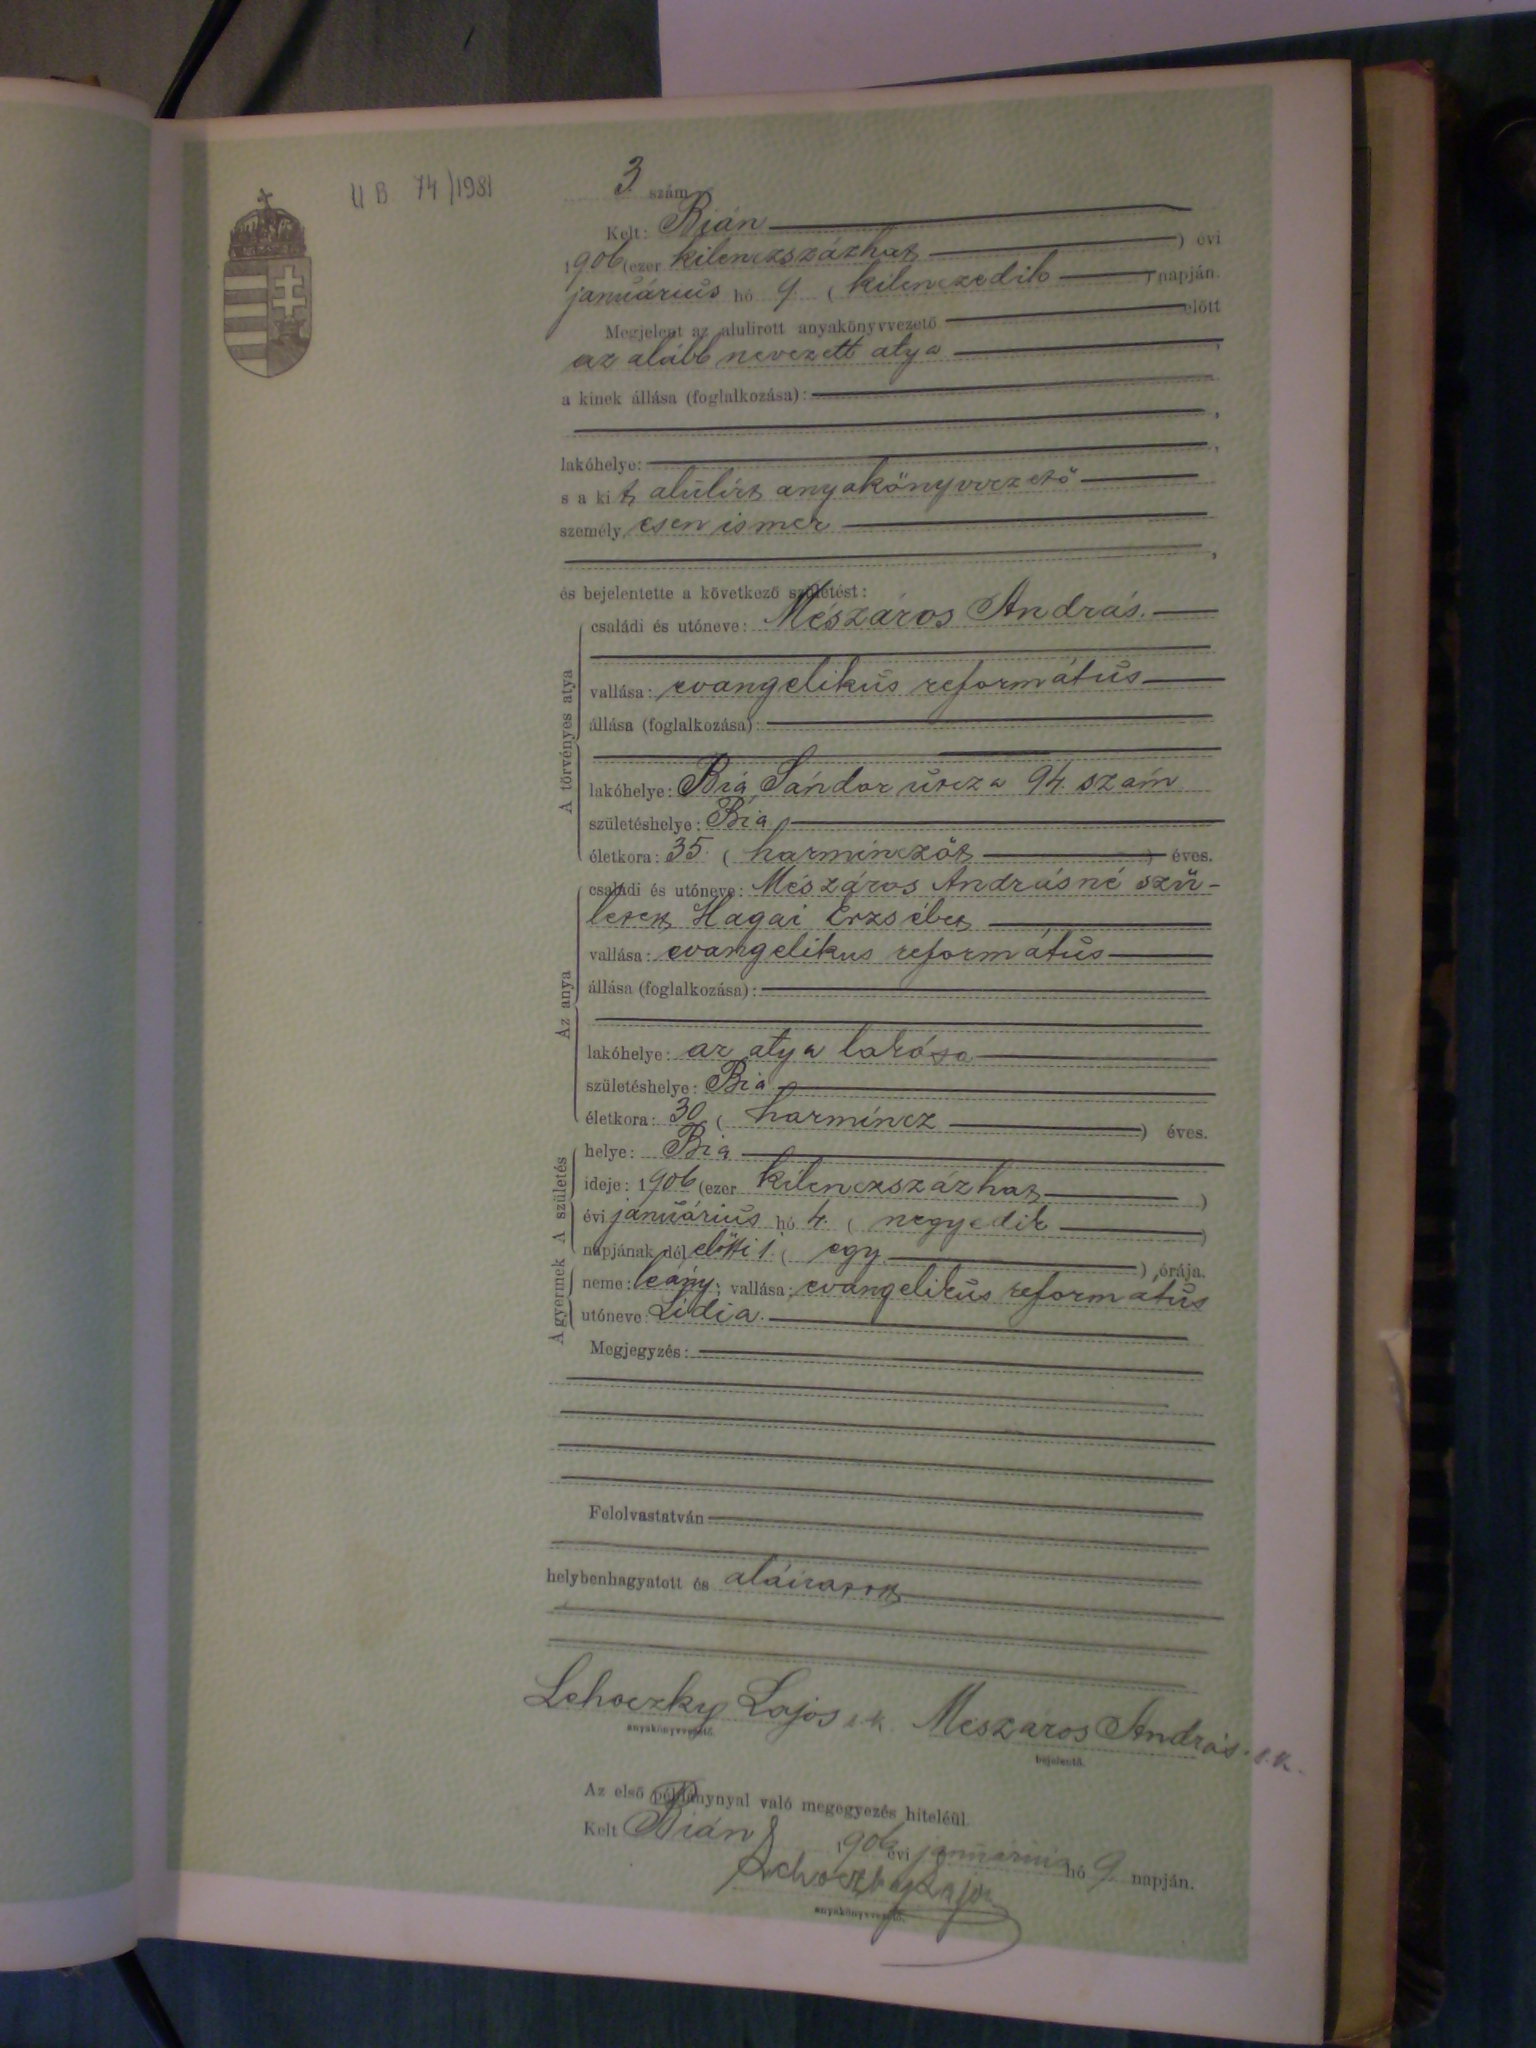 UB 74/1981
3 szám
Kelt: Bián
1906 (ezer kilenczszázhat ) évi
január​ius hó 9 ( kilenczedik ) napján.
Megjelent az alulirott anyakönyvvezető előtt
az alább nevezett atya ,
a kinek állása (foglalkozása):
,
lakóhelye: ,
s a kit alulírt anyakönyvvezető
személyesen ismer
,
és bejelentette a következő születést:
A törvényes atya
családi és utóneve: Mészáros András.
vallása: evangelikus református
állása (foglalkozása):
lakóhelye: Bia, Sándor utcza 94. szám
születéshelye: Bia
életkora: 35. ( harminczöt ) éves.
Az anya
családi és utóneve: Mészáros Andrásné szü-
letett Hagai Erzsébet
vallása: evangelikus református
állása (foglalkozása):
lakóhelye: az atya lakása
születéshelye: Bia
életkora: 30 ( harmincz ) éves.
A születés
helye: Bia
ideje: 1906 (ezer kilenczszázhat )
évi január​ius hó 4. ( negyedik )
napjának dél előtti 1 ( egy ) órája.
A gyermek
neme: leány; vallása: evangelikus református
utóneve: Lidia.
Megjegyzés:
Felolvastatván
helybenhagyatott és aláiratott
Lehoczky Lajos s.k. Mészáros András s.k.
anyakönyvvezető. bejelentő.
Az első példánynyal való megegyezés hiteléül.
Kelt Bián 1906 évi január​ius hó 9 napján.
Lehoczky Lajos
anyakönyvvezető.